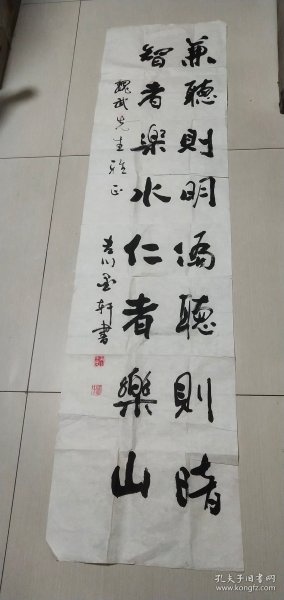 兼聽則明偏聽則暗
智者樂水仁者樂山
先生雅正
書
孔夫子旧书网